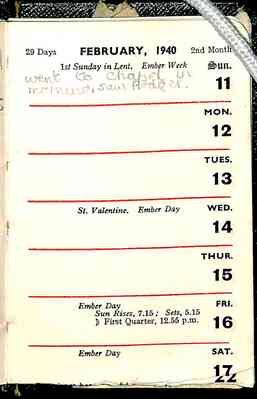 29 Days FEBRUARY, 1940 2nd Month
1st Sunday in Lent, Ember Week Sun.
went to chapel in 11
morning, saw
MON.
12
TUES.
13
St. Valentine, Ember Day WED.
14
THUR.
15
Ember Day FRI.
Sun Rises, 7.15 ; Sets, 5.15
☽ First Quarter, 12.55 p.m. 16
Ember Day SAT.
17